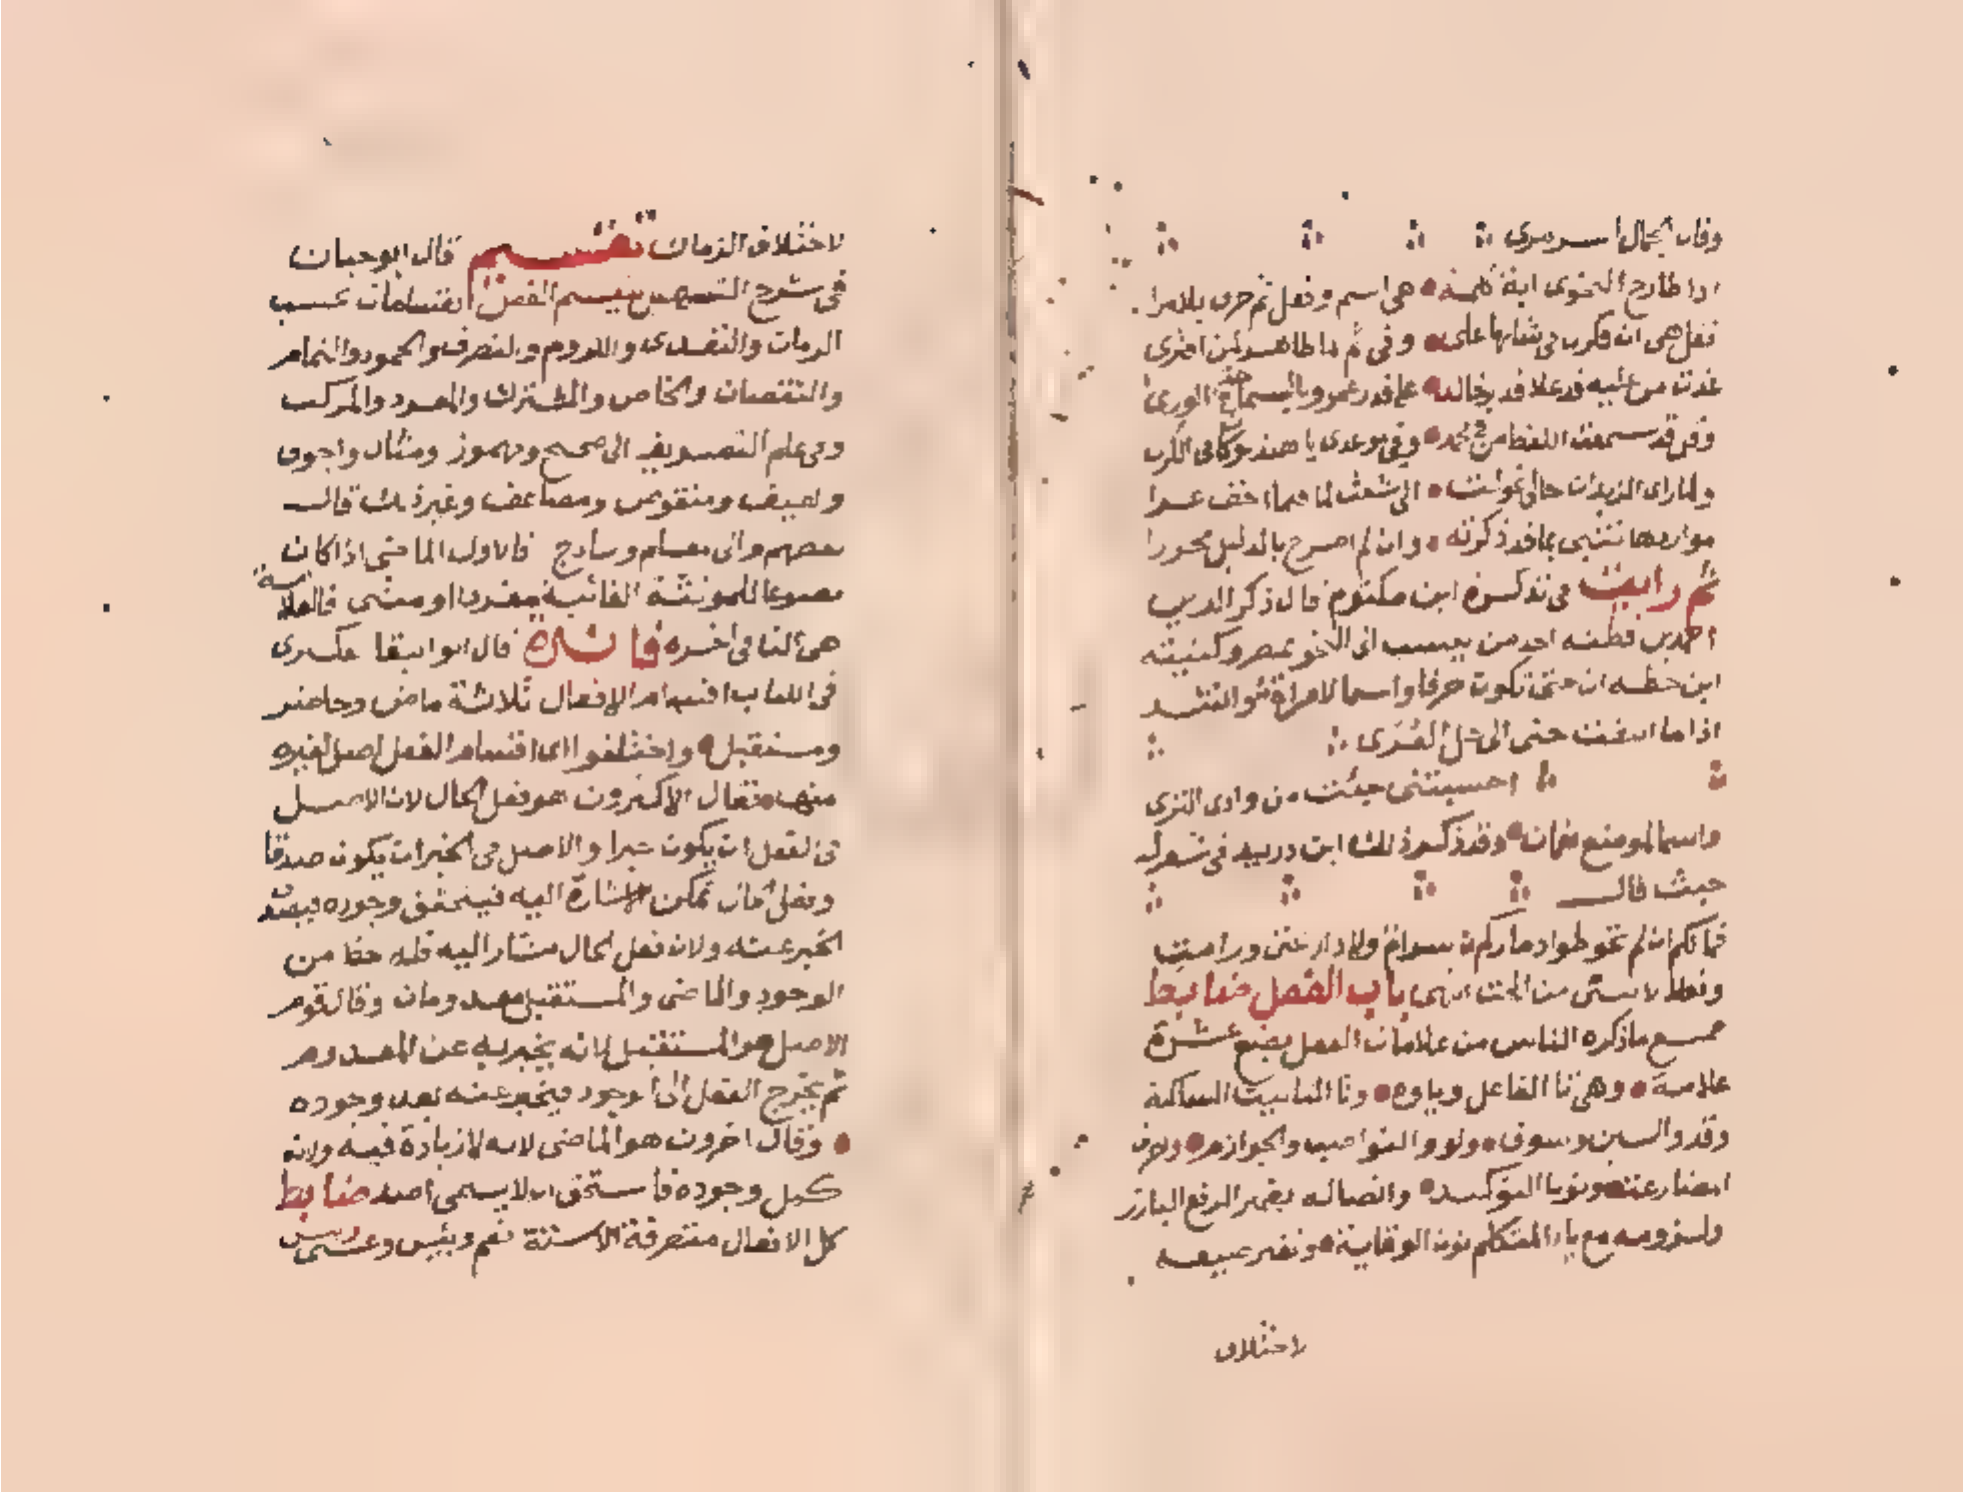 وقال الجمال السرمري
اذا طارح النحوى اية كلمة هى اسم وفعل ثم حرف بلا مرا
فقل هى ان فكرت فى شانها على وفى ثم لما ظاهر لمن اقترى
غدت من عليه قد علا قدر خالد على قدر عمرو بالسماح الورى
وفى قد سمعت اللفظ من فى محمد وفى موعدى يا هند لو كان فى الكرى
ولما راى الزيدان حالى تحولت الى شعث لما فما اخف عرا
مواردها تنبى بما قد ذكرته وان لم اصرح بالدليل محررا
ثم رايت فى تذكرة ابن مكتوم قال ذكر الدين
احمد بن قطنه احد من ينسب الى النحو بمصر وكنيته
ابن حطه ان حتى تكون حرفا واسما لامراة وانشد
اذا ما ابتغت حتى الى حل القرى
احسبتنى جئت من وادى القرى
واسما لموضع عمان وقد ذكر ذلك ابن دريد فى شعر له
حيث قال
فما لكم ان لم تحوطوا ذماركم سوام ولا دار بحتى ورامت
وفعلا لاستى من الحت انتهى باب الفعل ضابط
جميع ما ذكره الناس من علامات الفعل بضع عشرة
علامة وهى تا الفاعل وياوه وتا التانيث الساكنة
وقد والسين وسوف ولو والنواصب والجوازم واحرف
المضارعة ونونا التوكيد واتصاله بضمير الرفع البارز
ولزومه مع ياء المتكلم نون الوقاية وتغير صيغه
لاختلاف
لاختلاف الزمان تقسيم قال ابو حيان
فى شرح التسهيل ينقسم الفعل انقسامات بحسب
الزمان والتعدى واللزوم والتصرف والجمود والتمام
والنقصان والخاص والمشترك والمفرد والمركب
وفى علم التصريف الى صحيح ومهموز ومثال واجوف
ولفيف ومنقوص ومضاعف وغير ذلك قال
بعضهم والى معلم وساذج فالاول الماضى اذا كان
مصوغا للمونثة الغائبة مفردا او مثنى فالعلامة
هى التا فى اخره فائدة قال ابو البقا عكبرى
فى اللباب اقسام الافعال ثلاثة ماض وحاضر
ومستقبل واختلفوا اى اقسام الفعل اصل لغيره
منها فقال الاكثرون هو فعل الحال لان الاصل
فى الفعل ان يكون خبرا والاصل فى الخبر ان يكون صدقا
وفعل الحال تمكن الاشارة اليه فيتحقق وجوده فيصدق
الخبر عنه ولان فعل الحال مشار اليه فله حظ من
الوجود والماضى والمستقبل معدومان وقال قوم
الاصل هو المستقبل لانه يخبر به عن المعدوم
ثم يخرج الفعل الى الوجود فيخبر عنه بعد وجوده
وقال اخرون هو الماضى لانه لا زيادة فيه ولانه
كمل وجوده فاستحق ان لا يسمى اصلا ضابط
كل الافعال متصرفة الا ستة نعم وبئس وعسى وليس